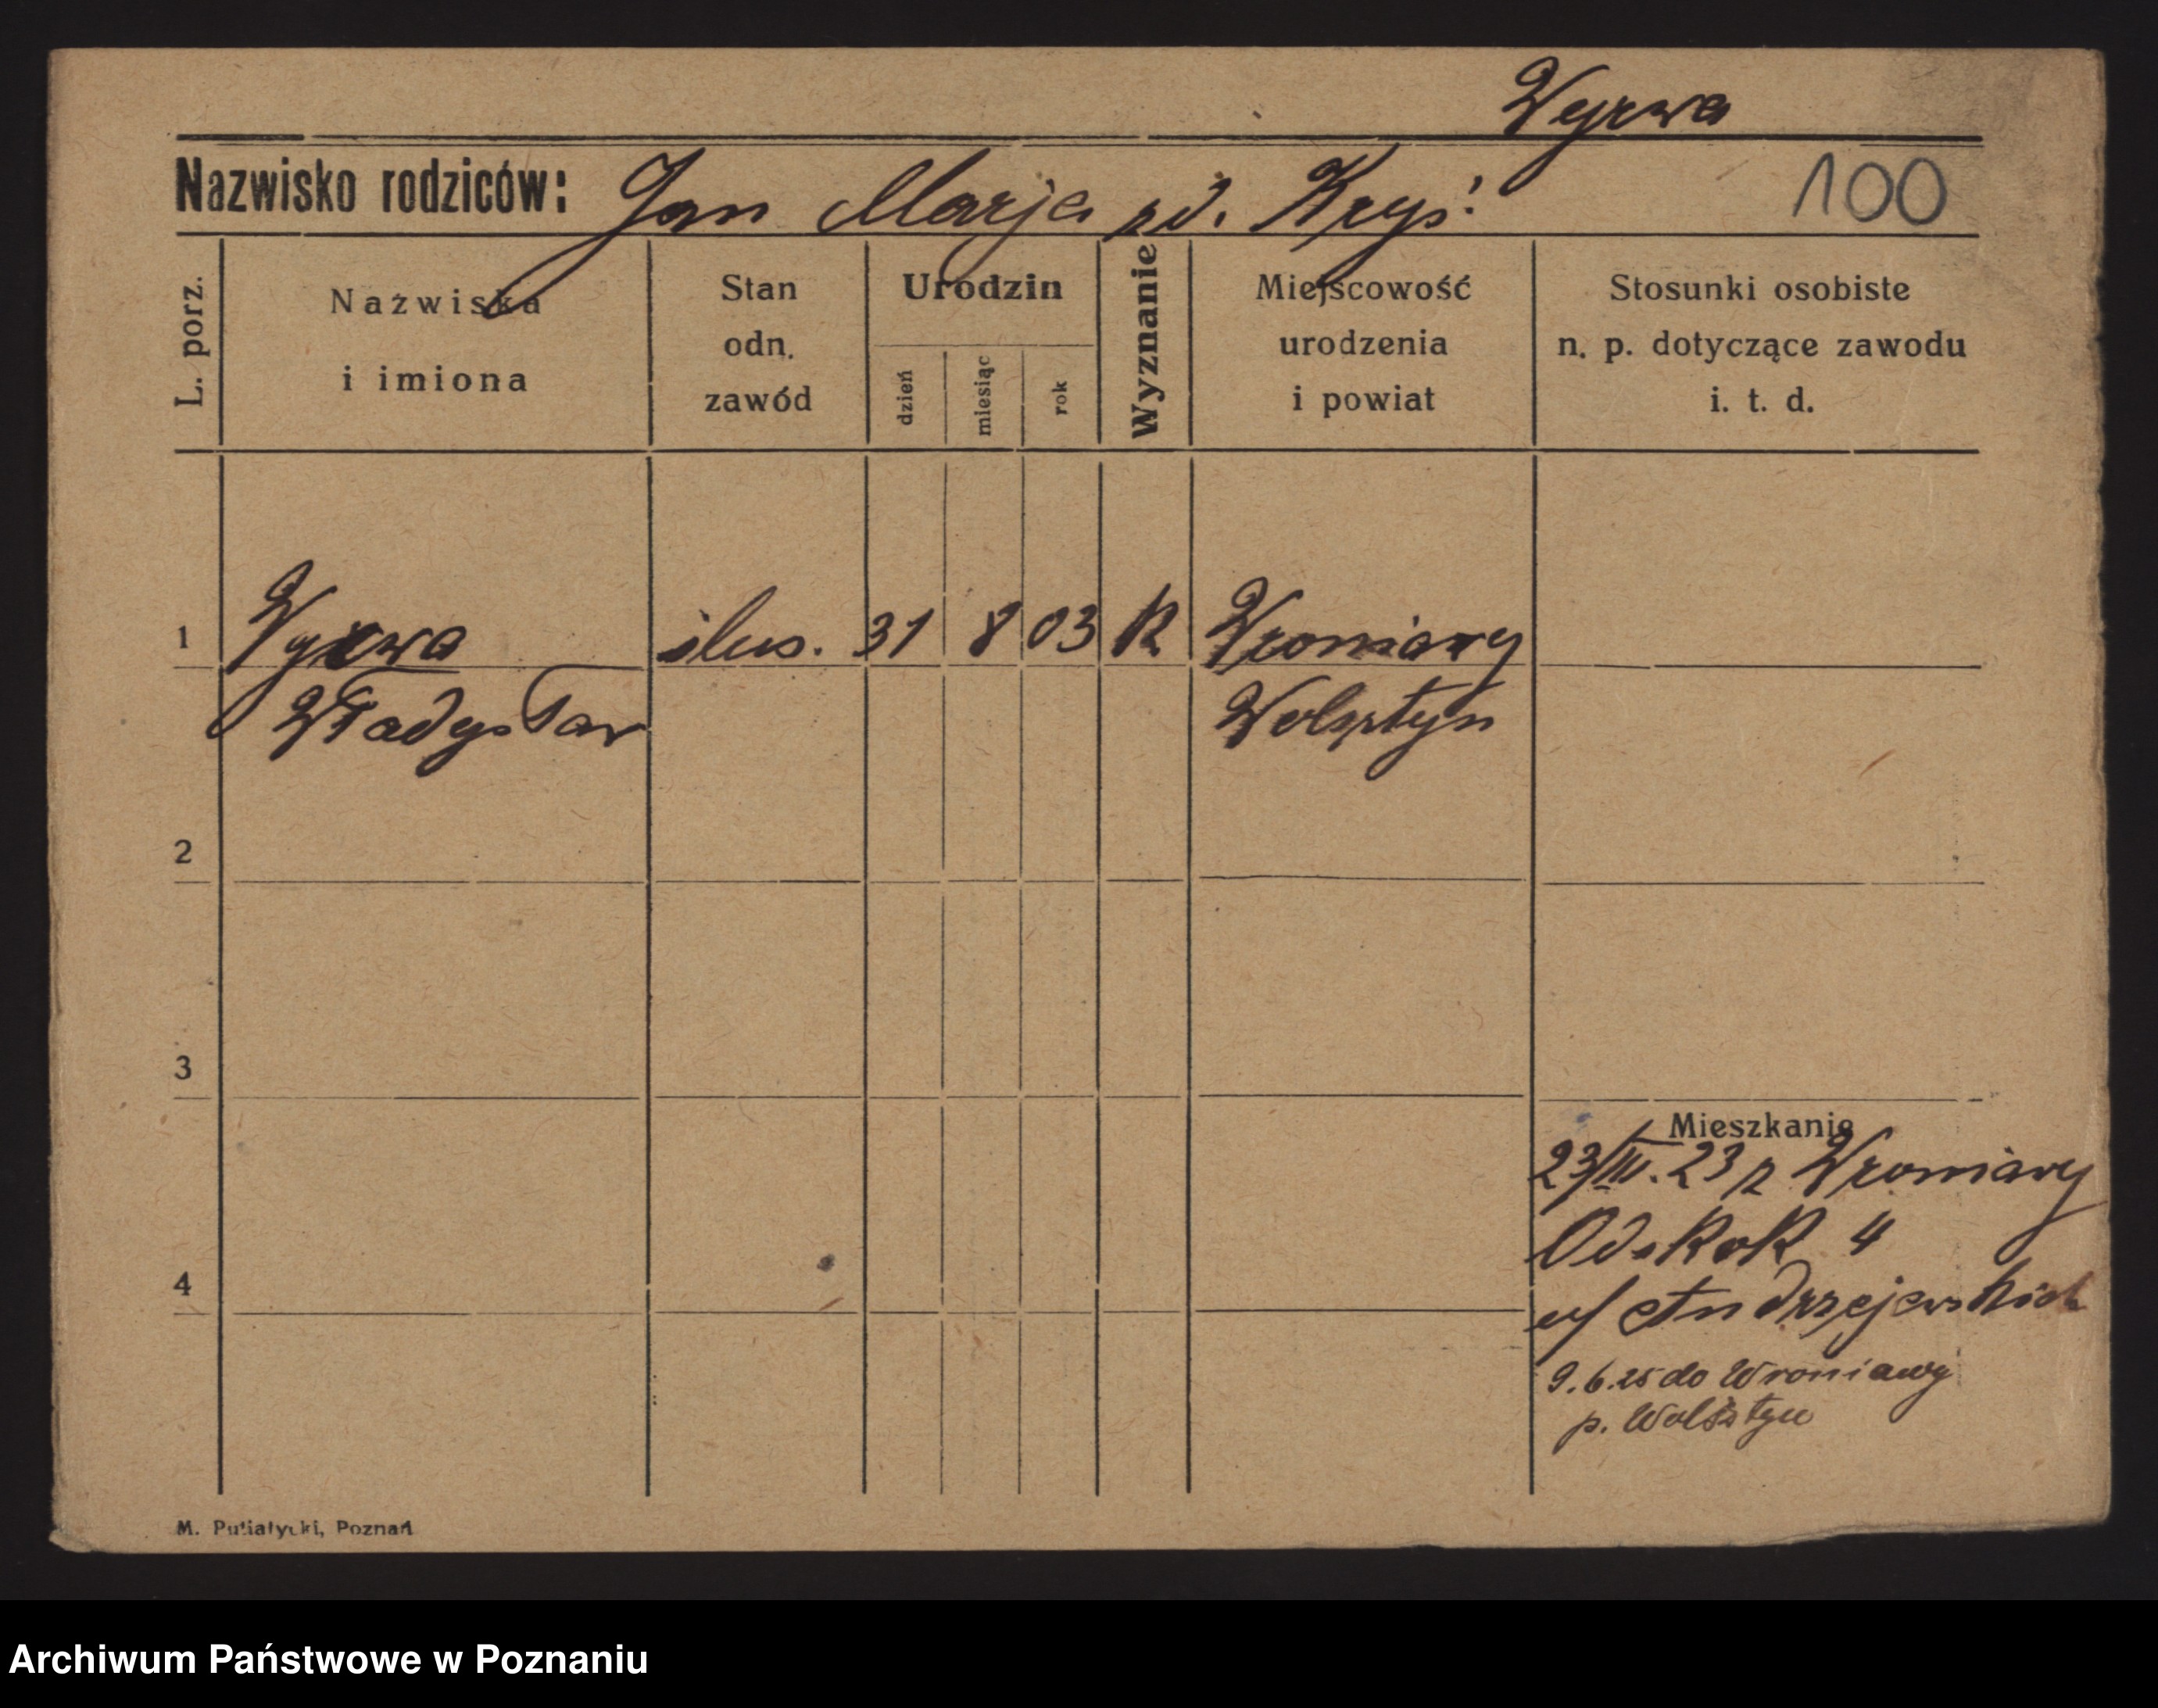 Wyrwa
Nazwisko rodziców: Jan Marja zd. Kryś
100
L. porz.
Nazwiska
i imiona
Stan
odn.
zawód
Urodzin
dzień
miesiąc
rok
Wyznanie
Miejscowość
urodzenia
i powiat
Stosunki osobiste
n. p. dotyczące zawodu
i. t. d.
1 Wyrwa ślus. 31 8 03 R Wroniawy
Władysław Wolsztyn
2
3
4
Mieszkanie
23/III. 23 z Wroniawy
Odskok 4
u/ Andrzejewskich
9.6.25 do Wroniawy
p. Wolsztyn
M. Putiatycki, Poznań
Archiwum Państwowe w Poznaniu